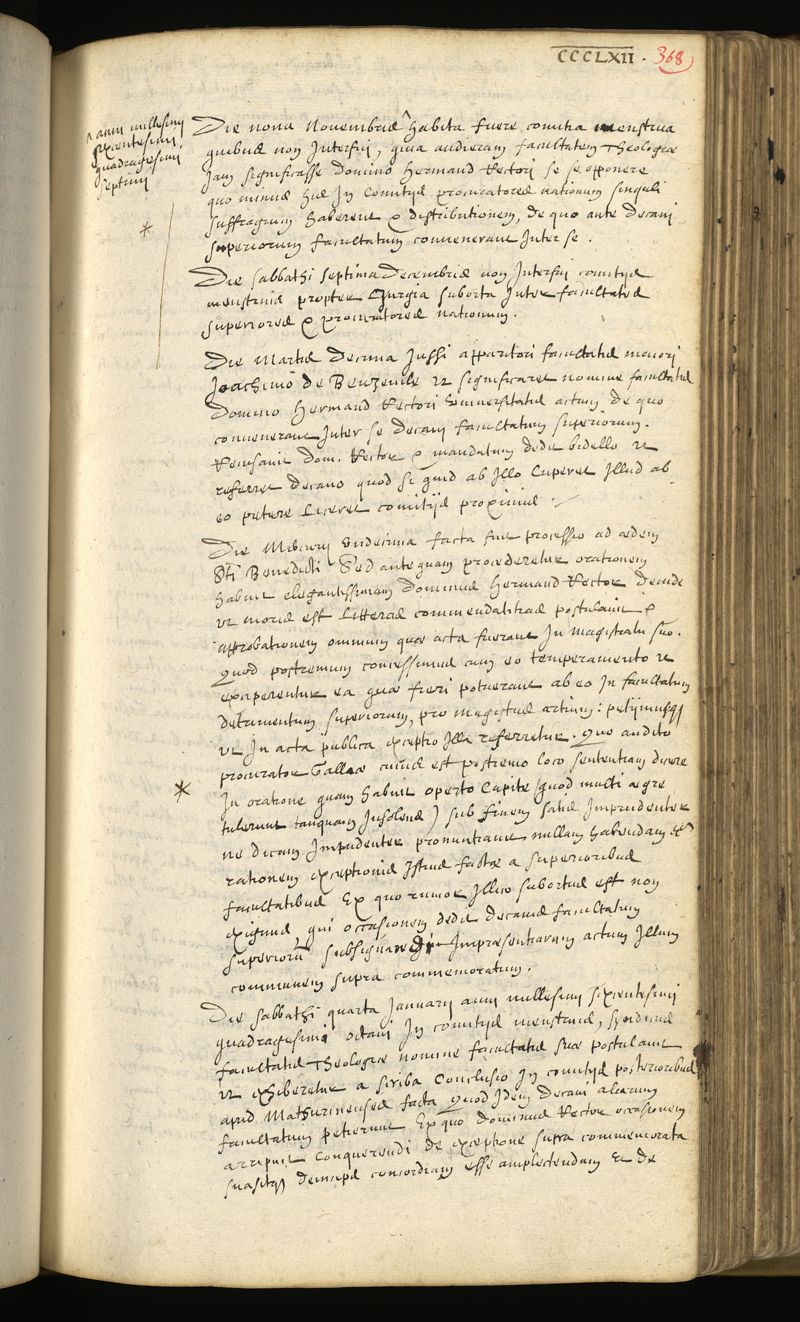 CCCLXII. 368
^ anni millesimi
sexcentesimi
quadragesimi
septimi
Die nona Novembris ^ habita fuere comitia menstrua
quibus non Interfui, quia audieram facultatem Theologiæ
Jam significasse Domino Hermand Rectori se se opponere
quo minus his In Comitijs procuratores nationum singuli
suffragium haberent & distributionem, de quo ante Decani
superiorum facultatum convenerant Inter se.
Die sabbathi septima Decembris non Interfui comitijs
menstruis propter Jurgia suborta Inter facultates
superiores & procuratores nationum.
Die Martis Decima Jussi apparitori facultatis maiori
Joachimo de Benzeville ut significaret nomine facultatis
Domino Hermand Rectori Universitatis actum de quo
convenerant Inter se Decani facultatum superiorum.
Recusavit Dom. Rector & mandatum dedit bidello ut
referret decano quod si quid ab Illo Cuperet Illud ab
eo petere Liceret comitijs proximis.
Die Mercurij Undecima facta fuit processio ad ædem
Sti Benedicti Sed antequam procederetur orationem
habuit elegantissimam Dominus Hermand Rector Deinde
ut moris est Litteras commendatitias postulavit &
approbationem omnium quæ acta fuerant In magistratu suo.
Quod postremum concessimus cum eo temperamento ut
exciperentur ea quæ fieri potuerant ab eo In facultatum
detrimentum superiorum, pro magistris artium: petijmusqz
ut In acta publica exceptio Illa referretur. Quo audito
procurator Galliæ cuius est postremo loco sententiam dicere
*
In oratione quam habuit operto Capite (quod multi ægre
tulerunt tanquam Insolens) sub finem satis Imprudenter
ne dicam Impudenter pronuntiavit nullam habendam esse
rationem exceptionis Istius factæ a superioribus
facultatibus Ex quo rumor Illico subortus est non
exiguus, qui occasionem dedit decanis facultatum
superiorū subsignandi Impræsentiarum actum Illum
communem supra commemoratum.
Die sabbathi quarta Januarij anni millesimi sexcentesimi
quadragesimi octavi In comitijs menstruis, syndicus
facultatis Theologiæ nomine facultatis suæ postulavit
ut exhiberetur a scriba Conclusio In comitijs posterioribus
apud Mathurinenses facta Quod Idem Decani aliarum
facultatum petierunt Ex quo dominus Rector occasionem
arripuit Conquerendi de exceptione supra commemorata
suasitqz deincips concordiam esse amplectendam & de